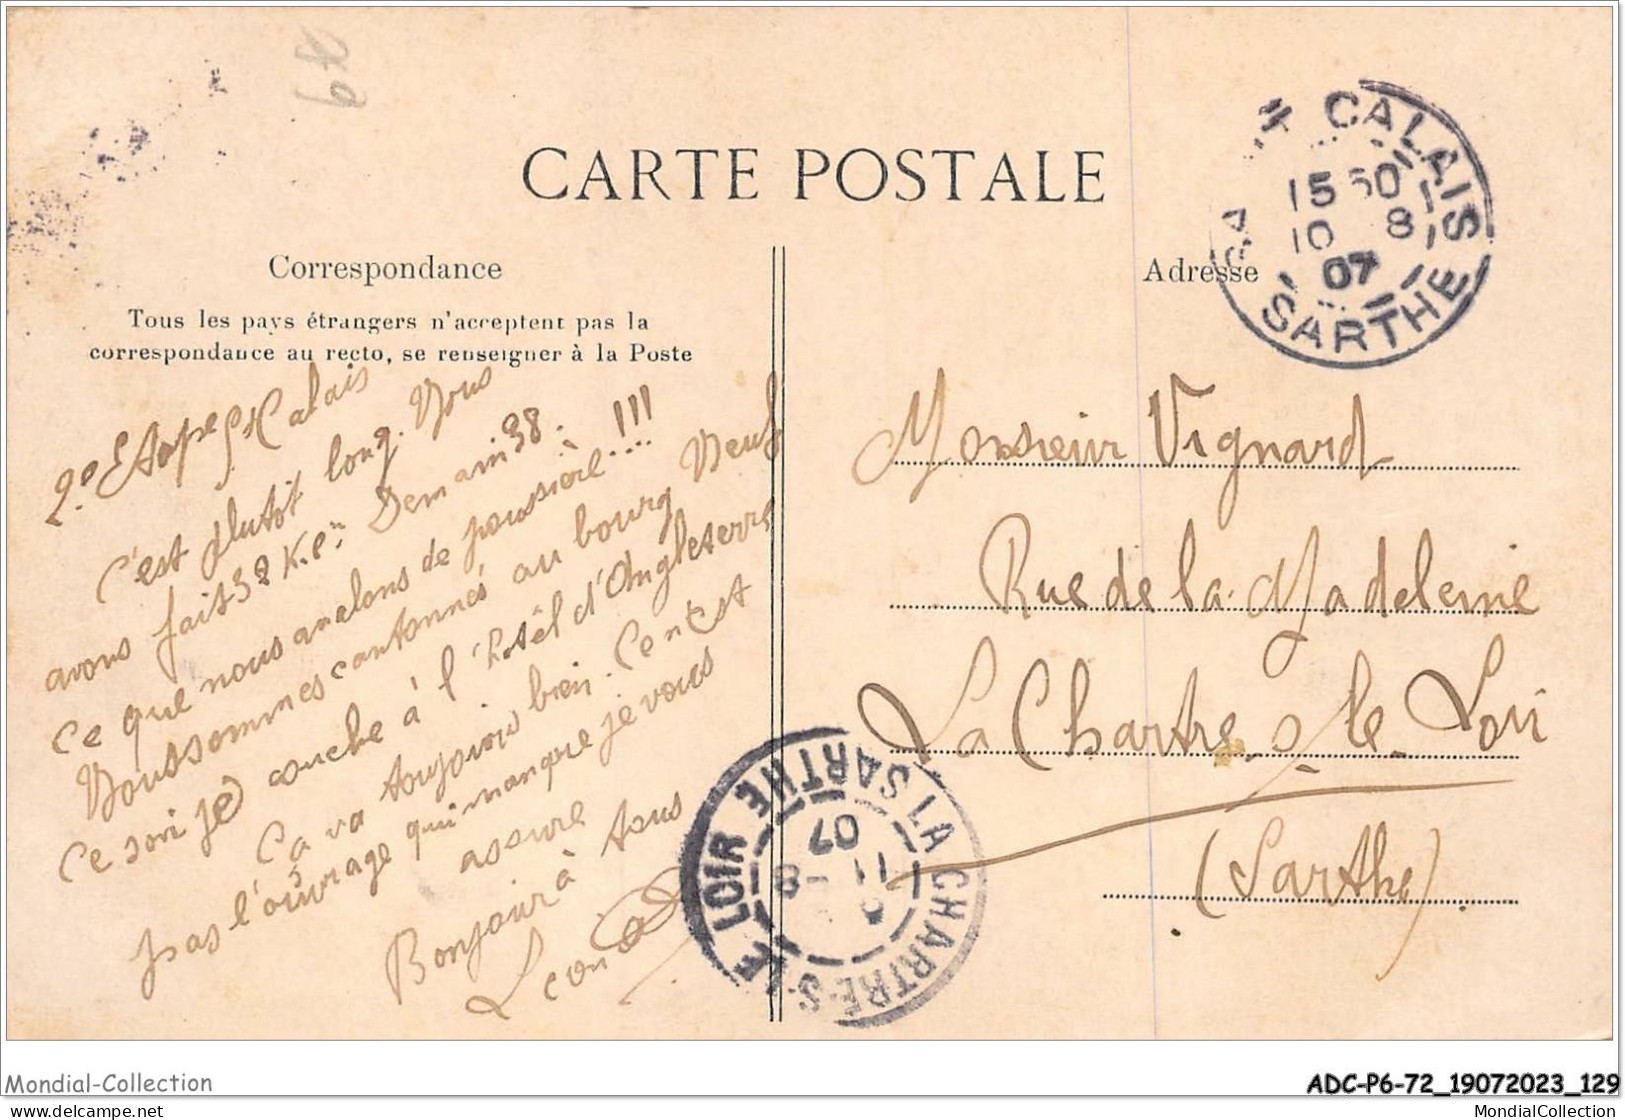 CARTE POSTALE
Correspondance
Tous les pays étrangers n'acceptent pas la
correspondance au recto, se renseigner à la Poste
2e Etape St Calais
C'est plutot long. Nous
avons fait 32 K. Demain 38.
Ce que nous avalons de poussière...!!!
Nous sommes cantonnés au bourg Neuf
Ce soir je couche à l'hotêl d'Angleterre
Ça va toujours bien. Ce n'est
pas l'ouvrage qui manque je vous
assure
Bonjour à tous
Adresse
CALAIS
15 50
10 8
07
SARTHE
Monsieur Vignard
Rue de la Madeleine
La Chartre s/ le Loir
(Sarthe)
LA CHARTRE-S-LE LOIR
SARTHE
11 -8
07
Mondial-Collection
ADC-P6-72_19072023_129
delcampe.net
MondialCollection